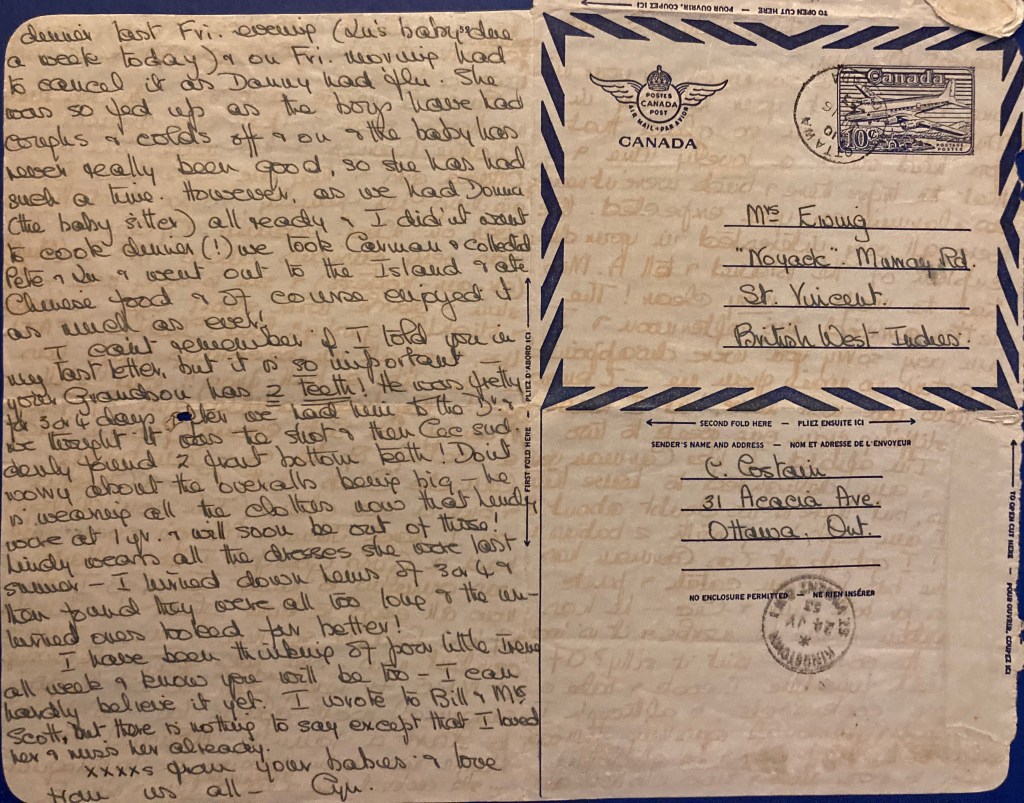 dinner last Fri. evening (Viv's baby's due
a week today) & on Fri. morning had
to cancel it as Danny had 'flu. She
was so fed up as the boys have had
coughs & colds off & on & the baby has
never really been good, so she has had
such a time. However, as we had Donna
(the baby sitter) all ready & I didn't want
to cook dinner (!) we took Carman & collected
Pete & Viv & went out to the Island & ate
Chinese food & of course enjoyed it
as much as ever!
I can't remember if I told you in
my last letter, but it is so important —
your Grandson has 2 Teeth! He was fretty
for 3 or 4 days after we had him to the Dr. &
we thought it was the shot & then Cec sud-
denly found 2 front bottom teeth! Don't
worry about the overalls being big – he
is wearing all the clothes now that Lindy
wore at 1 yr. & will soon be out of those!
Lindy wears all the dresses she wore last
summer – I turned down hems of 3 or 4 &
then found they were all too long & the un-
turned ones looked far better!
I have been thinking of poor little Irene
all week & know you will be too – I can
hardly believe it yet. I wrote to Bill & Mrs
Scott, but there is nothing to say except that I loved
her & miss her already.
xxxxs from your babies & love
from us all – Cyn.
TO OPEN CUT HERE — POUR OUVRIR, COUPEZ ICI
POSTES
CANADA
POST
AIR MAIL • PAR AVION
CANADA
Canada
10¢
POSTAGE
POSTES
OTTAWA
Mrs Ewing
"Noyack" Murray Rd.
St. Vincent.
British West Indies.
FIRST FOLD HERE — PLIEZ D'ABORD ICI
SECOND FOLD HERE — PLIEZ ENSUITE ICI
SENDER'S NAME AND ADDRESS — NOM ET ADRESSE DE L'ENVOYEUR
C. Costain
31 Acacia Ave.
Ottawa, Ont.
NO ENCLOSURE PERMITTED — NE RIEN INSÉRER
KINGSTOWN
24 JY
53
ST VINCENT
TO OPEN CUT HERE — POUR OUVRIR, COUPEZ ICI